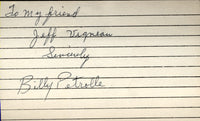 To my friend
Jeff Vigneau
Sincerely
Billy Petrolle